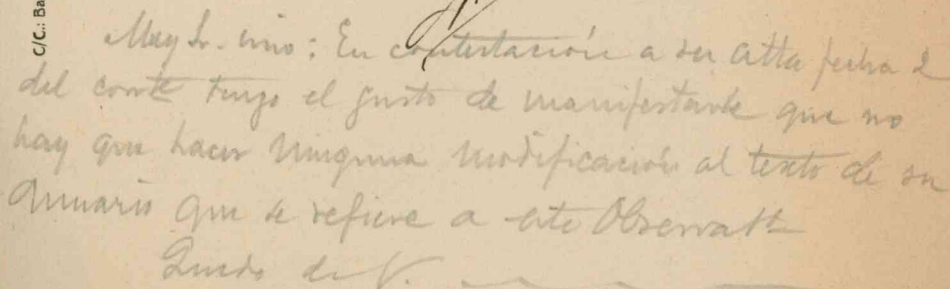 C/C.: Ba
Muy Sr. mio: En contestación a su atta fecha 2
del corrte tengo el gusto de manifestarle que no
hay que hacer ninguna modificación al texto de su
Anuario que se refiere a este Observatº
Quedo de V.